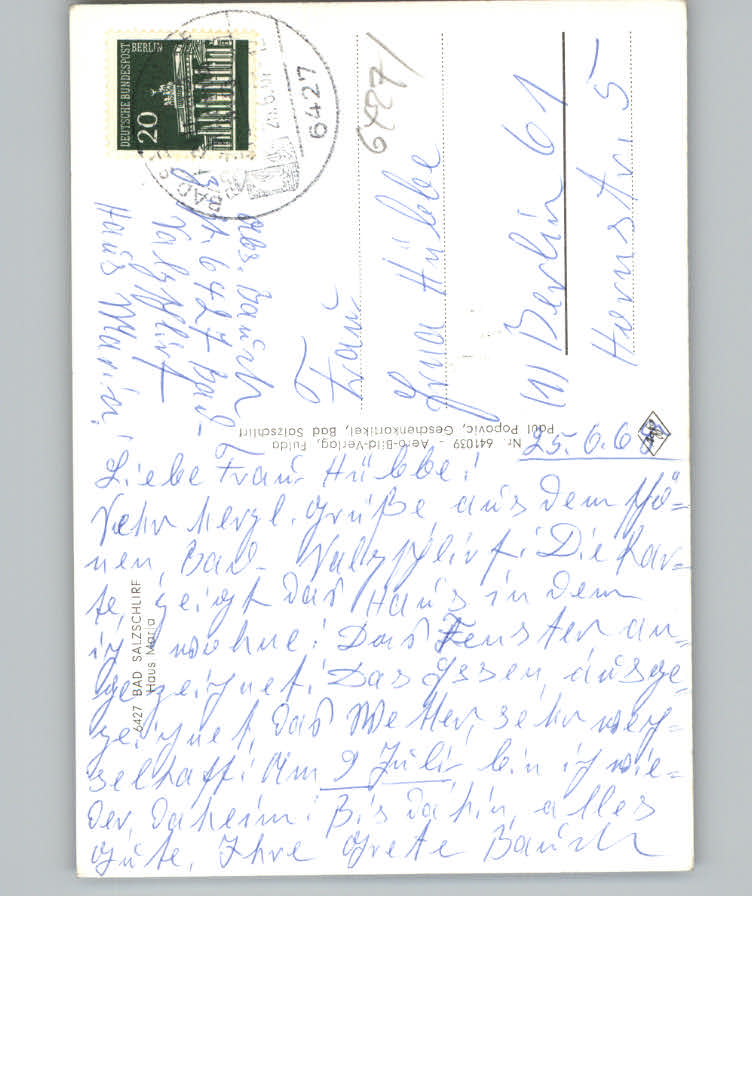 25.6.68
Liebe Frau Hübbe!
Sehr herzl. Grüße aus dem schö=
nen, Bad- Salzschlirf! Die Kar=
te, zeigt das Haus in dem
ich wohne! Das Fenster an=
gezeichnet! Das Essen, ausge=
zeichnet, das Wetter, sehr wech=
selhaft! Am 9 Juli bin ich wie=
der, daheim! Bis dahin, alles
Gute, Ihre Grete Bausch
6427 BAD SALZSCHLIRF
Haus Maria
Nr. 641039 – Aero-Bild-Verlag, Fulda
Paul Popovic, Geschenkartikel, Bad Salzschlirf
DEUTSCHE BUNDESPOST
BERLIN
20
6427
BAD
6427
Abs. Bausch
6427 Bad-
Salzschlirf
Haus Maria!
Frau
Irma Hübbe
(1) Berlin 61
Hornstr. 5